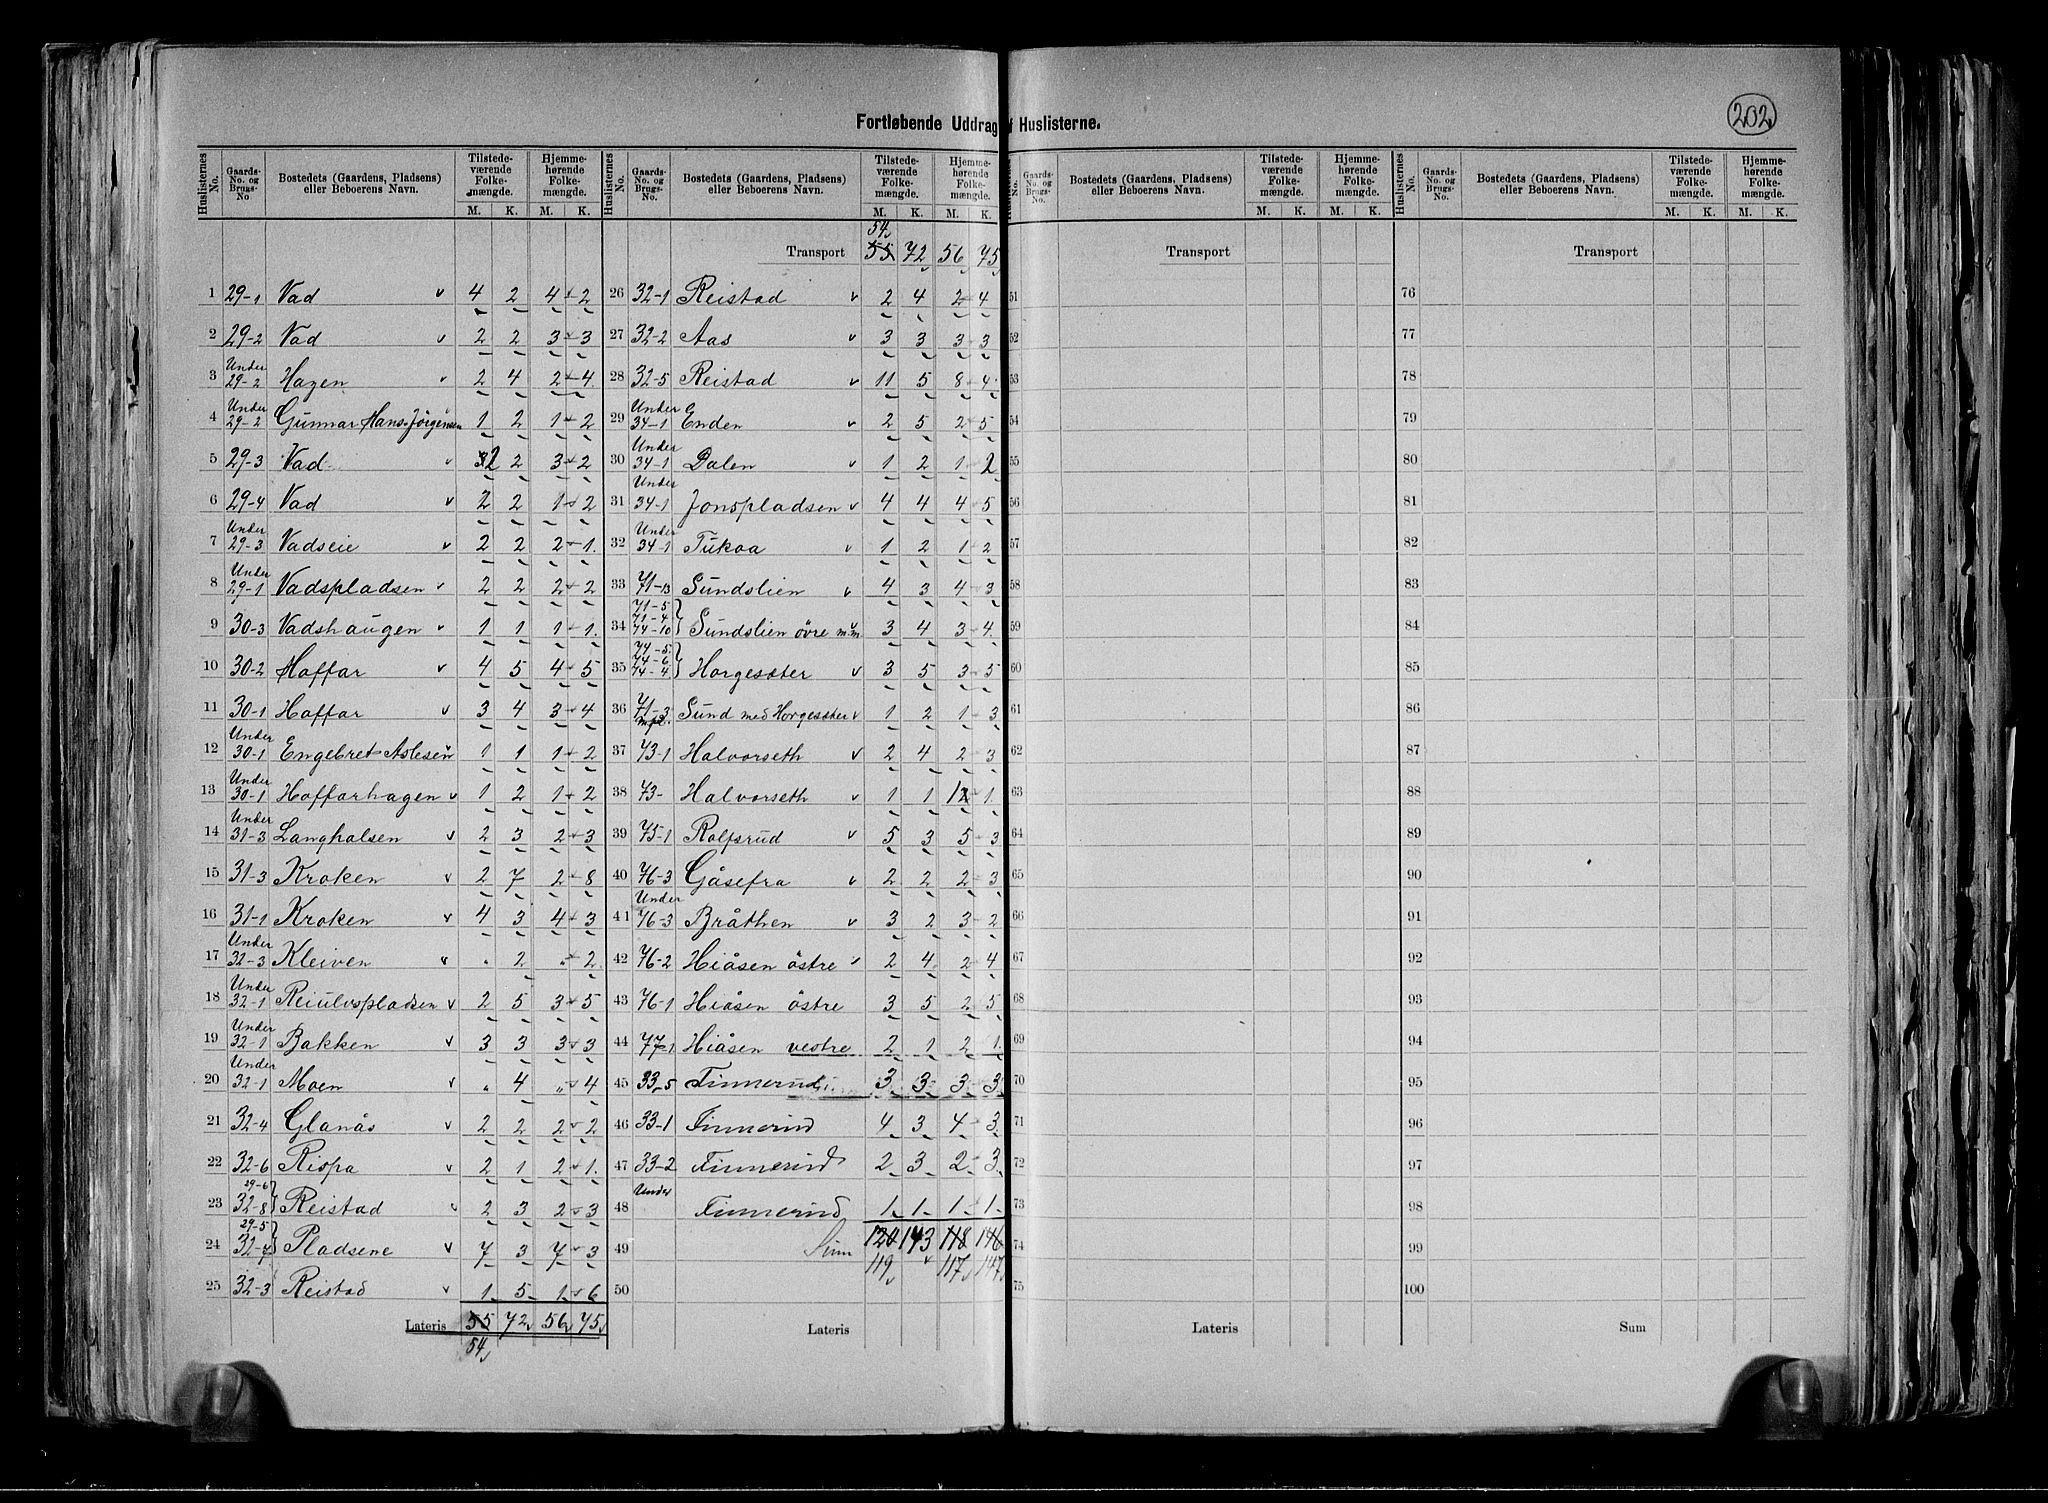 202
Fortløbende Uddrag f Huslisterne.
Huslisternes No. Gaards-No. og Brugs-No Bostedets (Gaardens, Pladsens) eller Beboerens Navn. Tilstedeværende Folkemængde. M. K. Hjemmehørende Folkemængde. M. K.
1 29-1 Vad v 4 2 4 2
2 29-2 Vad v 2 2 3 3
3 Under 29-2 Hagen v 2 4 2 4
4 Under 29-2 Gunnar Hans. Jørgensen 1 2 1 2
5 29-3 Vad v 2 2 3 2
6 29-4 Vad v 2 2 1 2
7 Under 29-3 Vadseie v 2 2 2 1
8 Under 29-1 Vadspladsen v 2 2 2 2
9 30-3 Vadshaugen v 1 1 1 1
10 30-2 Haffar v 4 5 4 5
11 30-1 Haffar v 3 4 3 4
12 Under 30-1 Engebret Aslesen 1 1 1 2
13 Under 30-1 Haffarhagen v 1 2 1 2
14 Under 31-3 Langhalsen v 2 3 2 3
15 31-3 Kroken v 2 7 2 8
16 31-1 Kroken v 4 3 4 3
17 Under 32-3 Kleiven v " 2 " 2
18 Under 32-1 Reiulvspladsen v 2 5 3 5
19 Under 32-1 Bakken v 3 3 3 3
20 Under 32-1 Moen v " 4 " 4
21 32-4 Glanås v 2 2 2 2
22 32-6 Rispa v 2 1 2 1
23 29-6 32-8 Reistad v 2 3 2 3
24 29-5 32-7 Pladsene v 7 3 7 3
25 32-3 Reistad v 1 5 1 6
Lateris 55 72 56 75
54
Huslisternes No. Gaards-No. og Brugs-No. Bostedets (Gaardens, Pladsens) eller Beboerens Navn. Tilstedeværende Folkemængde. M. K. Hjemmehørende Folkemængde. M. K.
54
Transport 55 72 56 75
26 32-1 Reistad v 2 4 2 4
27 32-2 Aas v 3 3 3 3
28 32-5 Reistad v 11 5 8 4
29 Under 34-1 Enden v 2 5 2 5
30 Under 34-1 Dalen v 1 2 1 2
31 Under 34-1 Jonspladsen v 4 4 4 5
32 Under 34-1 Tukaa v 1 2 1 2
33 71-13 Sundslien v 4 3 4 3
34 71-5 71-4 74-10 Sundslien övre m.m. 3 4 3 4
35 74-5 74-6 74-4 Horgesæter v 3 5 3 5
36 71-3 Sund med Horgesæter v 1 2 1 3
37 73-1 Halvorseth v 2 4 2 3
38 73- Halvorseth v 1 1 1
39 75-1 Rolfsrud v 5 3 5 3
40 76-3 Gåsefra v 2 2 2 3
41 Under 76-3 Bråthen v 3 2 3 2
42 76-2 Hiåsen östre v 2 4 2 4
43 76-1 Hiåsen östre 3 5 2 5
44 77-1 Hiåsen vestre 2 1 2 1
45 33-5 Finnerud 3 3 3 3
46 33-1 Finnerud 4 3 4 3
47 33-2 Finnerud 2 3 2 3
48 Under Finnerud 1 1 1 1
49 Sum 120 143 118 146
119 v 117 147
50
Lateris
No. Gaards-No. og Brugs-No. Bostedets (Gaardens, Pladsens) eller Beboerens Navn. Tilstedeværende Folkemængde. M. K. Hjemmehørende Folkemængde. M. K.
Transport
51
52
53
54
55
56
57
58
59
60
61
62
63
64
65
66
67
68
69
70
71
72
73
74
75
Lateris
Huslisternes No. Gaards-No. og Brugs-No. Bostedets (Gaardens, Pladsens) eller Beboerens Navn. Tilstedeværende Folkemængde. M. K. Hjemmehørende Folkemængde. M. K.
Transport
76
77
78
79
80
81
82
83
84
85
86
87
88
89
90
91
92
93
94
95
96
97
98
99
100
Sum